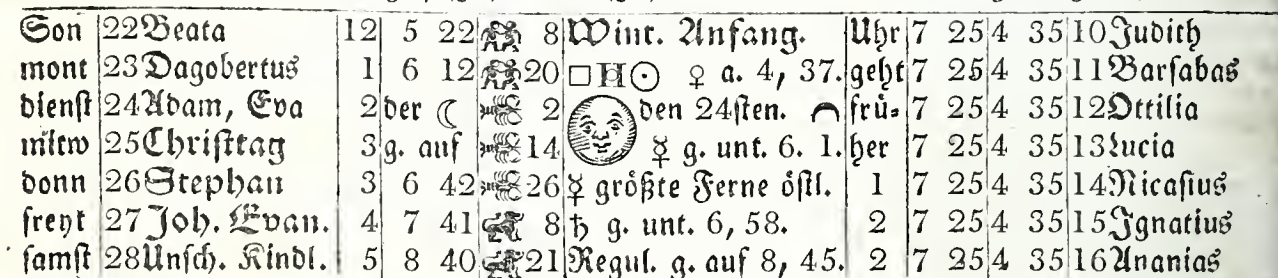 Son 22 Beata 12 5 22 8 Wint. Anfang. Uhr 7 25 4 35 10 Judith
mont 23 Dagobertus 1 6 12 20 □ H ☉ ♀ a. 4, 37. geht 7 25 4 35 11 Barsabas
dienst 24 Adam, Eva 2 der ☾ 2 den 24sten. frü= 7 25 4 35 12 Ottilia
mitw 25 Christtag 3 g. auf 14 ☿ g. unt. 6. 1. her 7 25 4 35 13 Lucia
donn 26 Stephan 3 6 42 26 ☿ größte Ferne östl. 1 7 25 4 35 14 Nicasius
freyt 27 Joh. Evan. 4 7 41 8 ♄ g. unt. 6, 58. 2 7 25 4 35 15 Ignatius
samst 28 Unsch. Kindl. 5 8 40 21 Regul. g. auf 8, 45. 2 7 25 4 35 16 Ananias